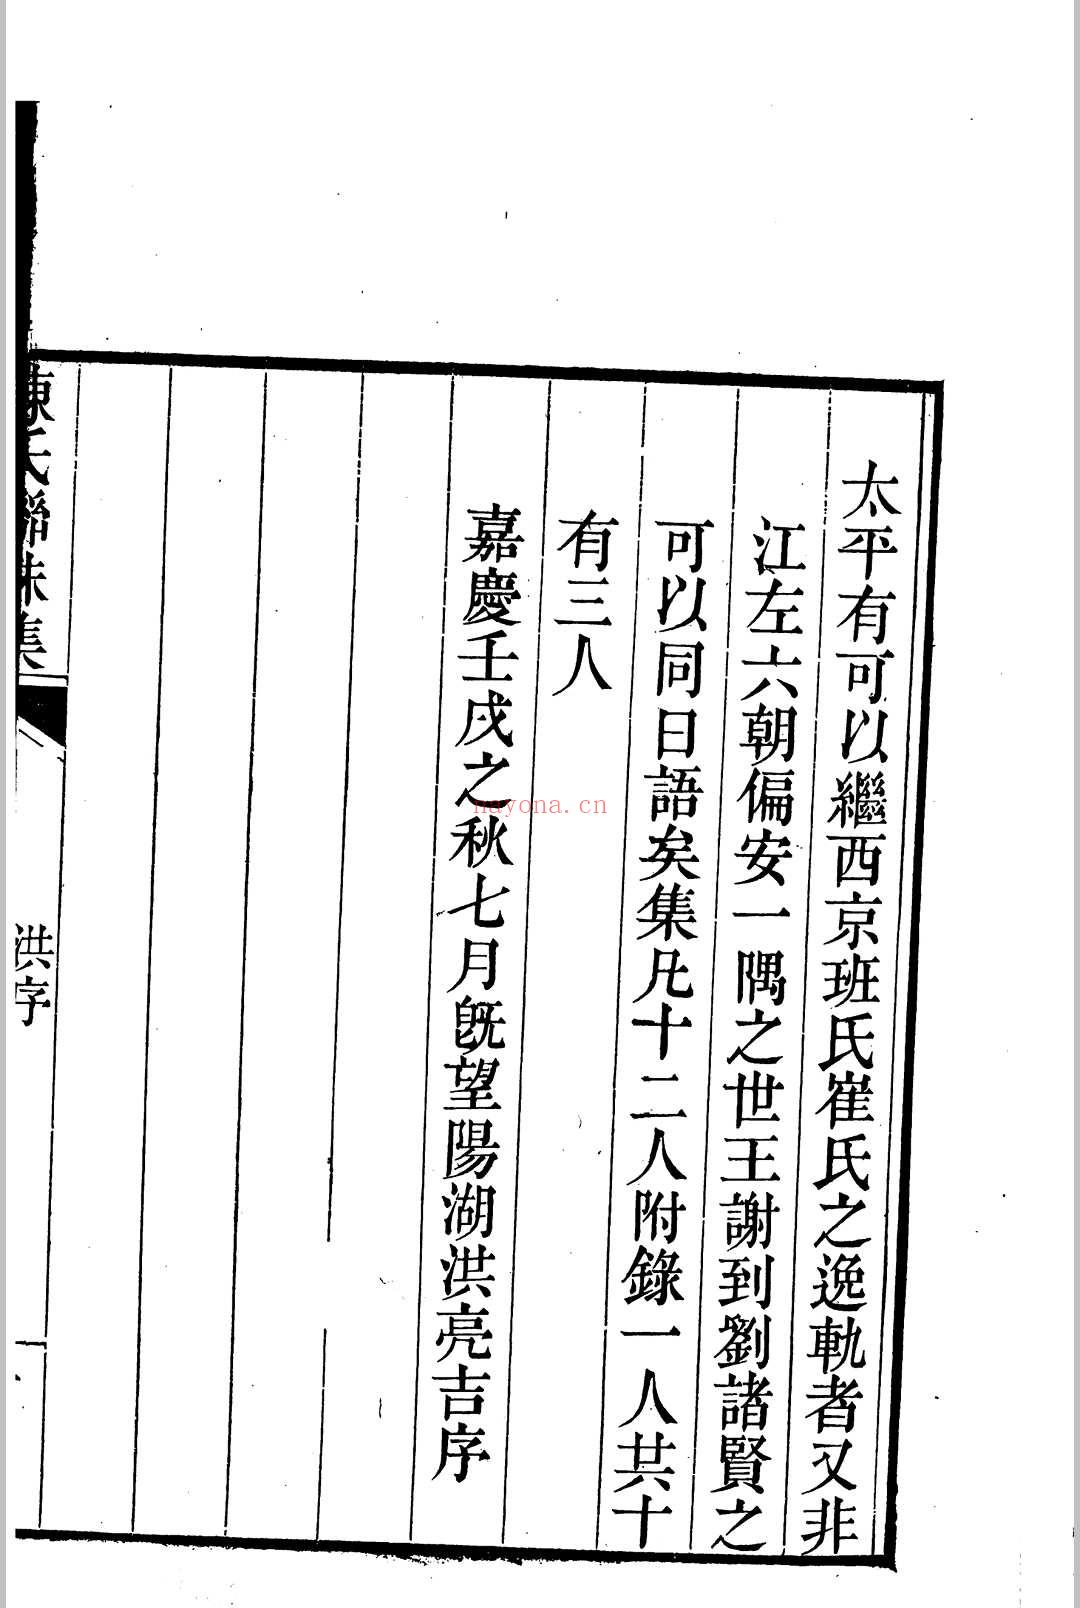 太平有可以繼西京班氏崔氏之逸軌者又非
江左六朝偏安一隅之世王謝到劉諸賢之
可以同日語矣集凡十二人附錄一人共十
有三人
嘉慶壬戌之秋七月旣望陽湖洪亮吉序
陳氏聯珠集
洪序
nayona.cn